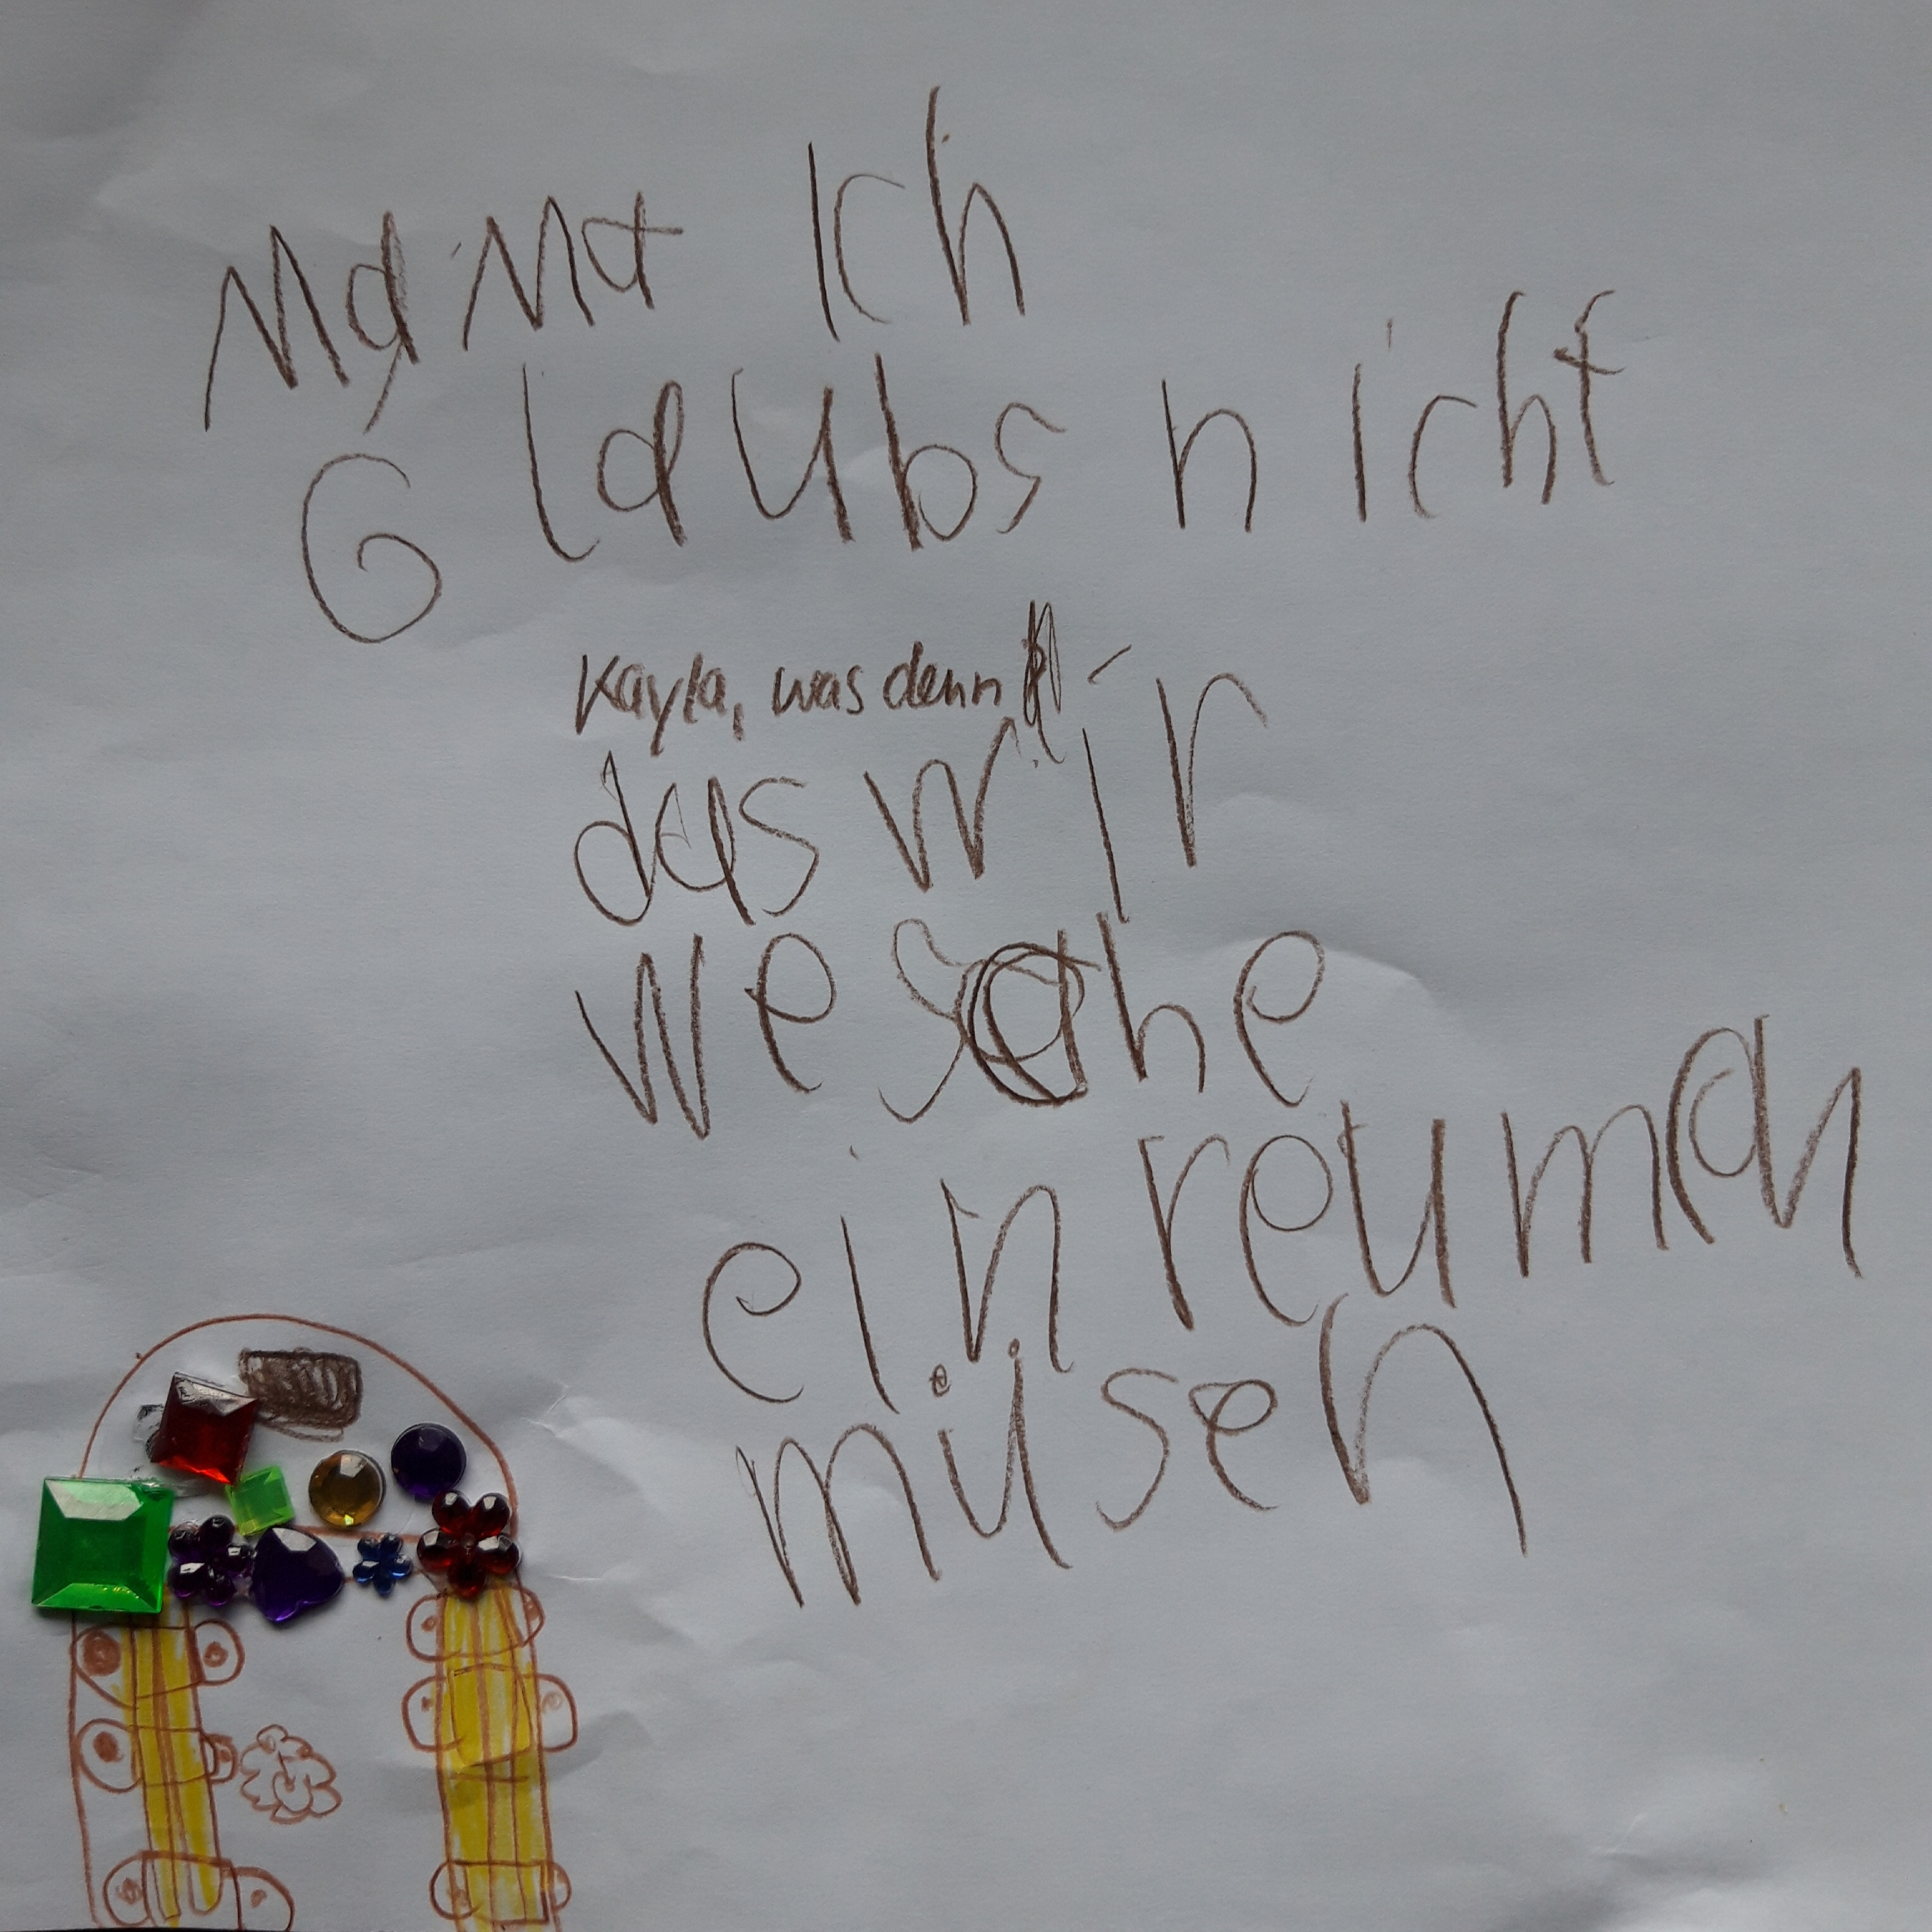 Mama Ich
Glaubs nicht
Kayla, was denn
das wir
wesche
ein reuman
müsen